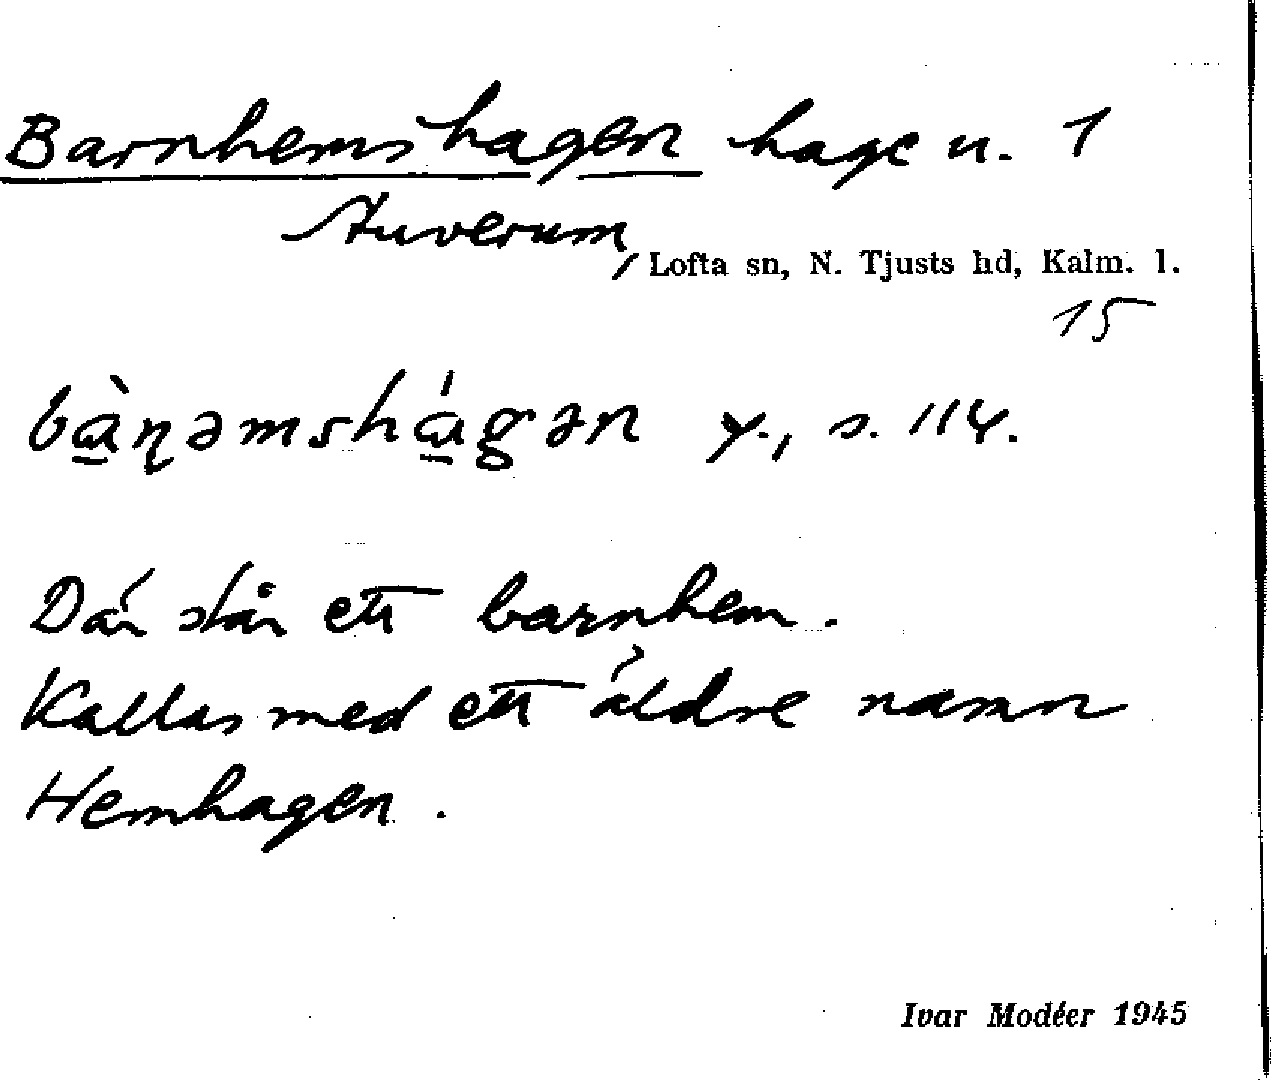 Barnhemshagen hage n. 1
Auverum
, Lofta sn, N. Tjusts hd, Kalm. l.
15
bàɳəmshágən y., s. 114.
Där står ett barnhem.
Kallas med ett äldre namn
Hemhagen.
Ivar Modéer 1945